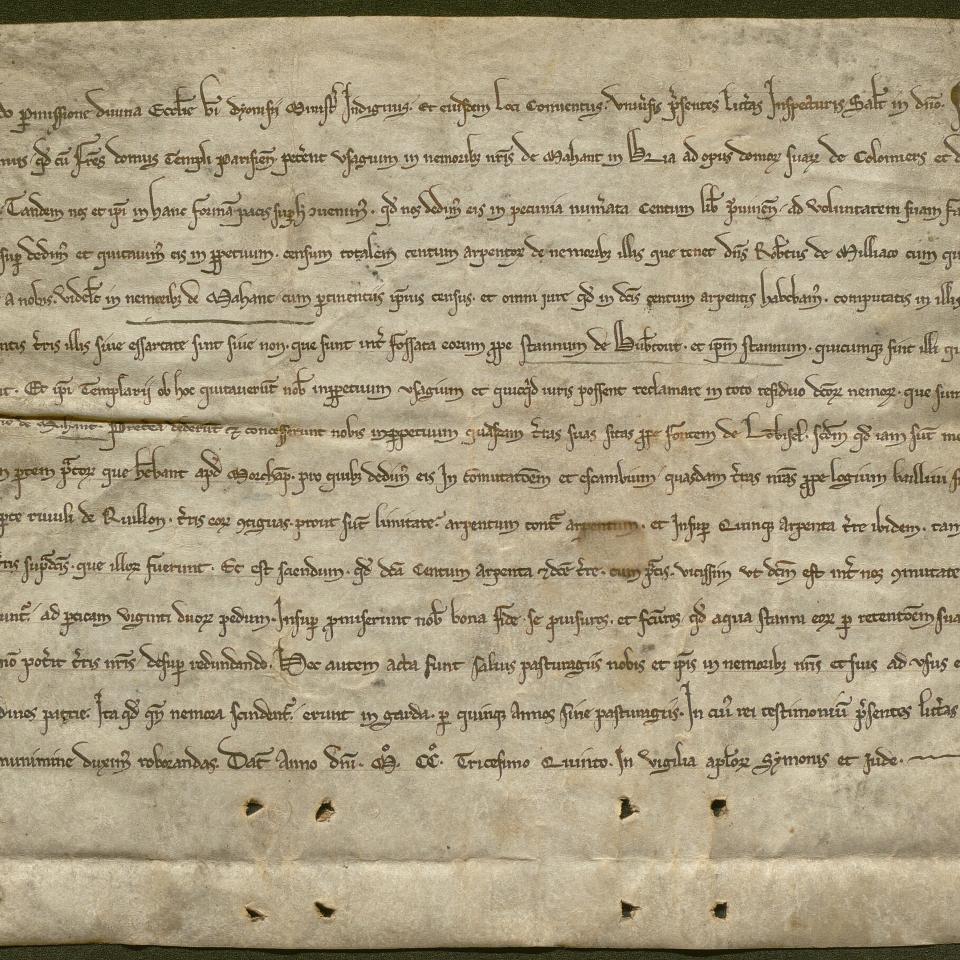 do p̄missione diuina Eccl̄ie b̄i dyonisij Ministꝰ Indignus. Et eiusdem loci Conuentus. vniu̾sis p̾sentes litt̾as Inspecturis Salt̄ in dn̄o.
qd̾ cū Fr̄es domus Templi parisien̄ pet̾ent vsagium in nemoribꝫ nr̄is de Mahant in Bria ad opus domoꝝ suaꝝ de Colomiers et
Tandem nos et ip̄i in hanc formā pacis sup̾ h̾ ꝯuenim̾. qd̾ nos dedim̾ eis in pecunia num̾ata Centum lib̾ p̾uinien̄. ad voluntatem suam
dedim̾ et quitauim̾ eis in p̄petuum. censum totalem centum arpentoꝝ de nemoribꝫ illis que tenet dn̄s Rob̾tus de Milliaco cum
a nobis. videl̾t in nemoribꝫ de Mahant cum p̄tinentiis ip̄ius census. et omni iure qd̾ in dc̄is centum arpentis habebam̾. computatis in illis
t̾ris illis siue essartate sint siue non. que sunt int̾ fossata eorum p̄pe stannum de et ip̄m stannum. quicunqꝫ sint illi
Et ip̄i Templarij ob hoc quitauer̄t nob̾ inp̄petuum vsagium et quicqͥd iuris possent reclamare in toto residuo dc̄oꝝ nemoꝝ. que
de Mahant. Preterea dederūt et concesserunt nobis inp̄petuum quasdam t̾ras suas sitas p̄pe fontem de Lobisel. scd̄m qd̾ iam sūt
p̄tem p̾toꝝ que h̄ebant apd̾ pro quibꝫ dedim̾ eis In cōmutatōem et escambium quasdam t̾ras nr̄as p̄pe logium balliui
riuuli de Ruillon. t̾ris eoꝝ ꝯtiguas. prout sūt limitate. arpentum cont̾ arpentum. et Insup̾ Quinqꝫ Arpenta t̾re ibidem.
sup̾dc̄is. que illoꝝ fuerunt. Et est sciendum. qd̾ dc̄a Centum arpenta ⁊ dc̄e t̾re. cum p̾tis. vicissim vt dc̄m est int̾ nos ꝯmutate
ad p̄ticam viginti duoꝝ pedum. Insup̾ p̾miserunt nob̾ bona fide se p̾uisuros. et fc̄uros. qd̾ aqua stanni eoꝝ p̄ retentōem
pot̾it t̾ris nr̄is desup̾ redundando. Hec autem acta sunt saluis pasturagiis nobis et ip̄is in nemoribꝫ nr̄is et suis ad vsus
pat̾e. Ita qd̾ qn̄ nemora scindent̾. erunt in garda. p̄ quinqꝫ Annos sine pasturagiis. In cui̾ rei testimoniū p̾sentes litt̾as
munimine duxim̾ roborandas. Dat̄ Anno dn̄i. M̊. CC̊. Tricesimo Quinto. In vigilia aplōꝝ Symonis et Iude.